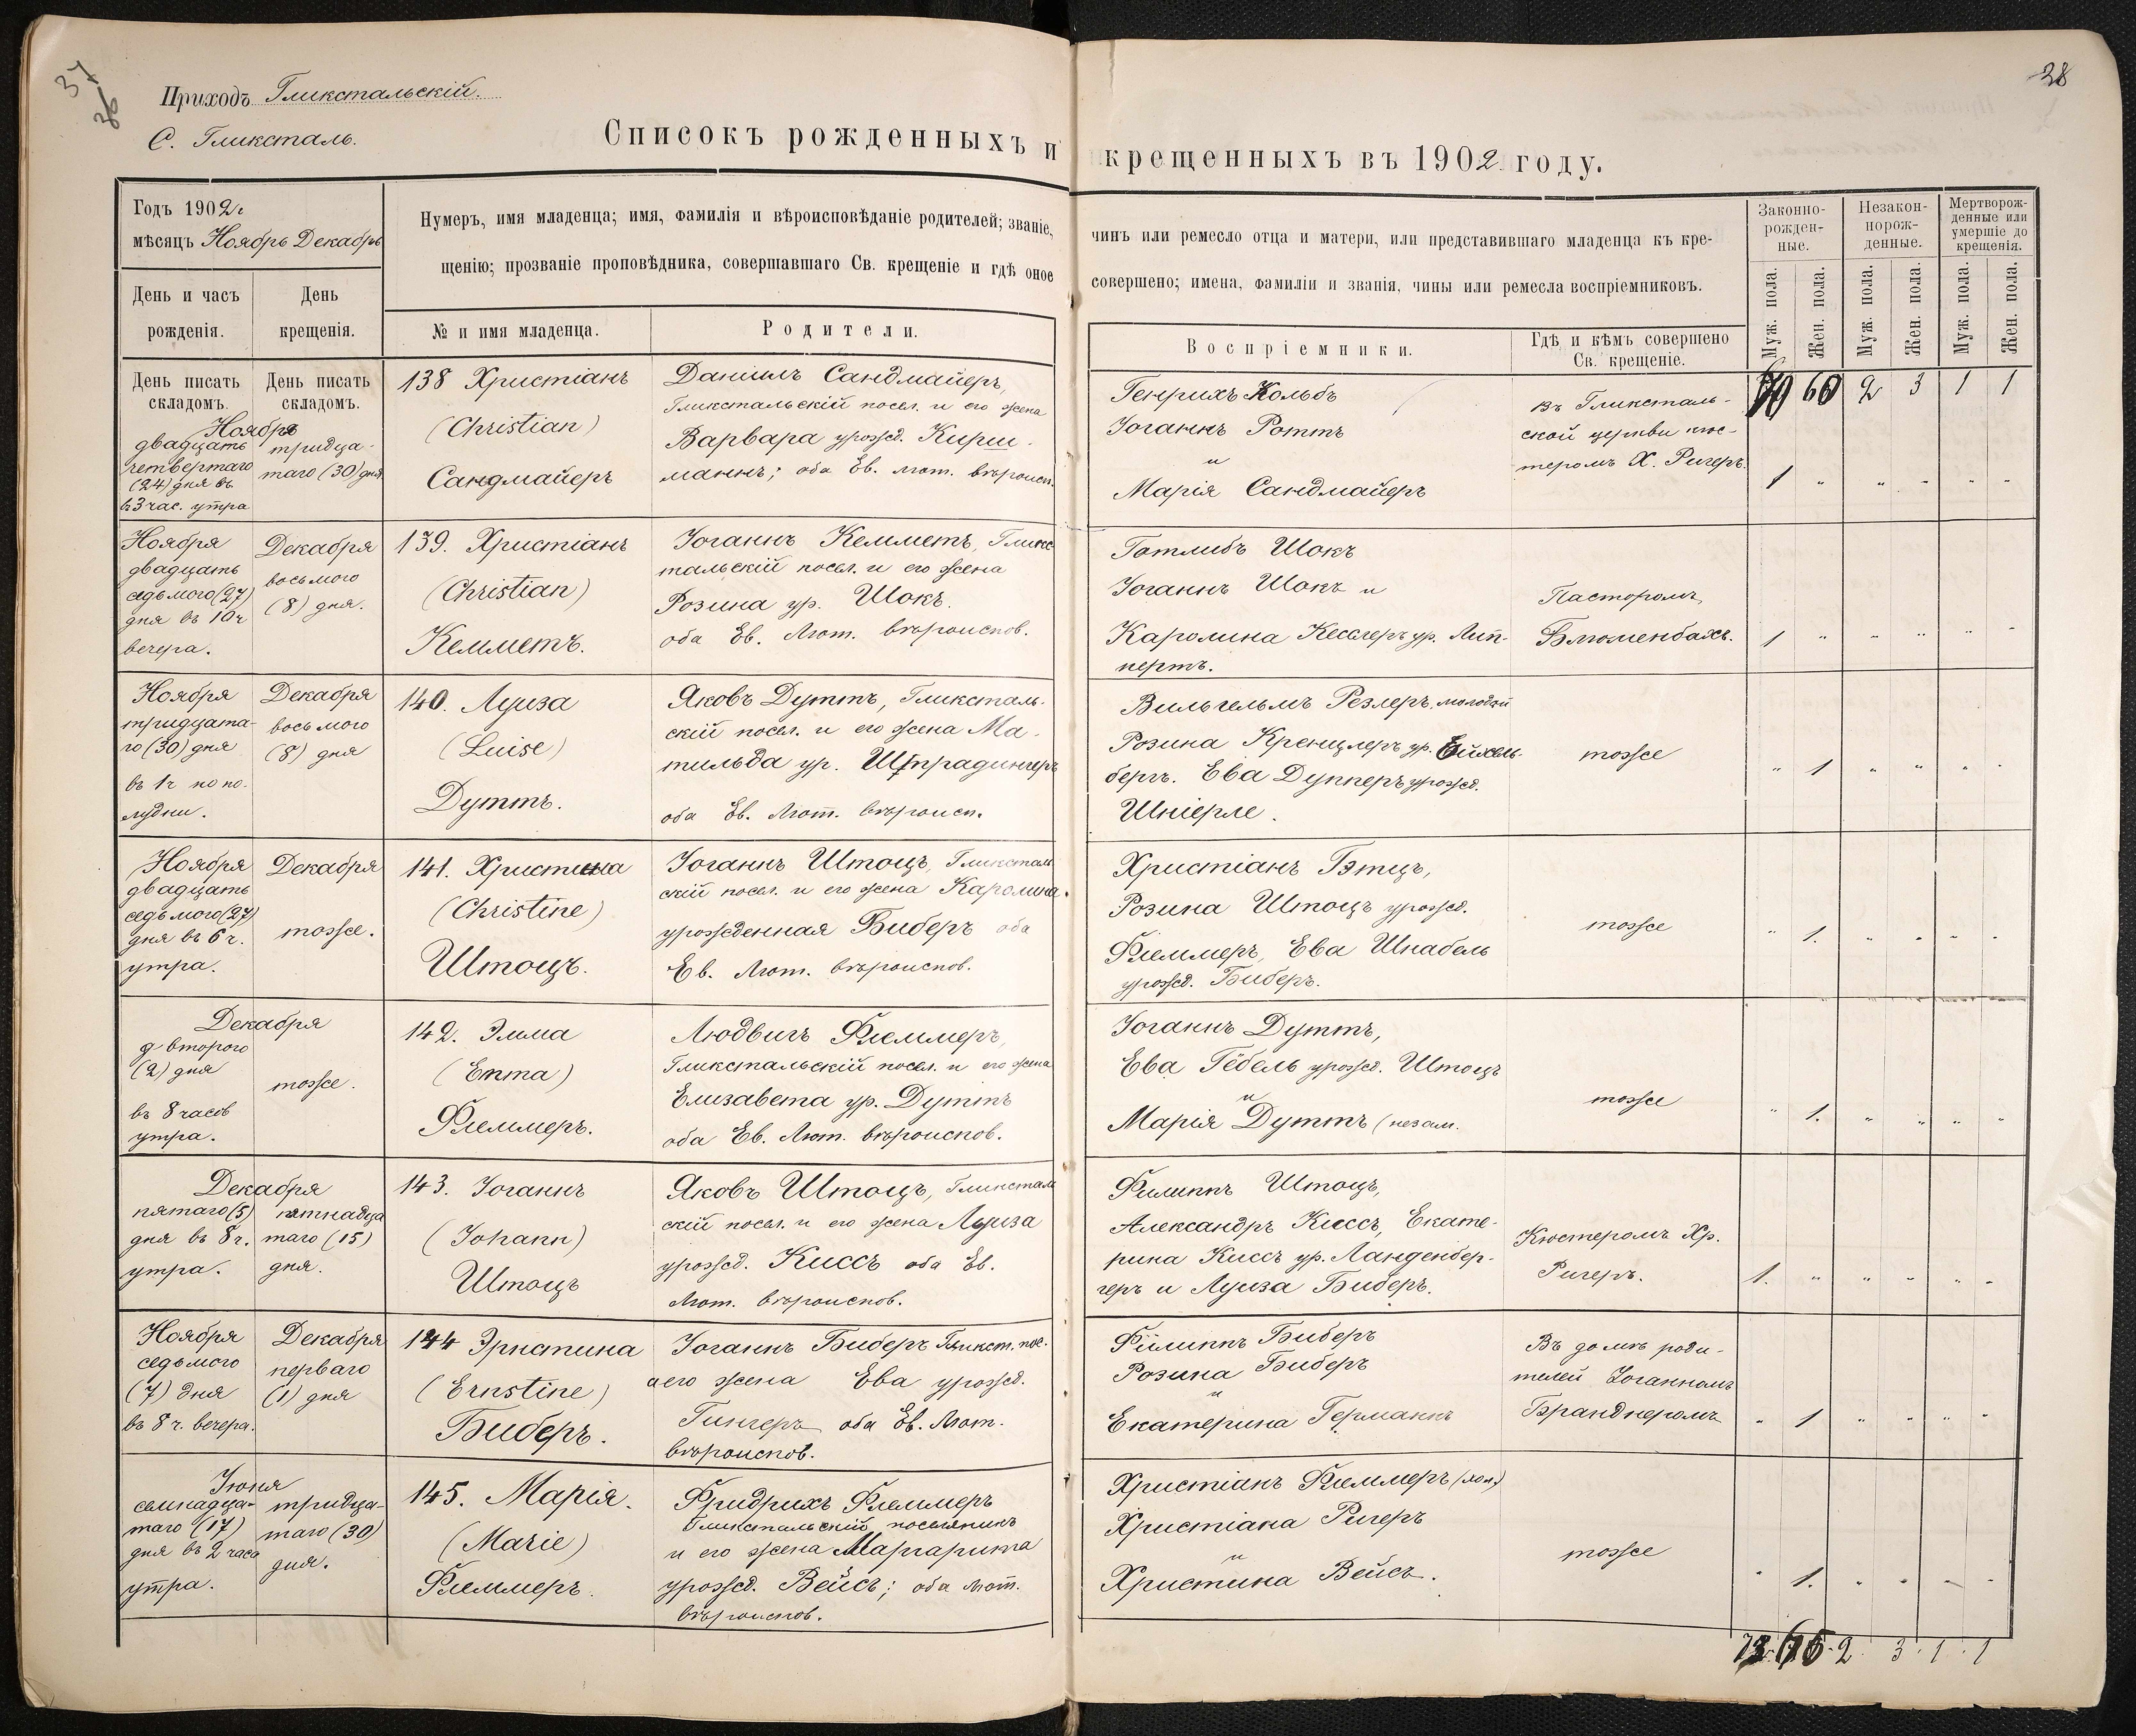 37
36
28
Приходъ Гликстальскій.
С. Гликсталь.
Списокъ рожденныхъ и крещенныхъ въ 1902 году.
Годъ 1902г.
мѣсяцъ Ноябрь Декабрь
День и часъ рожденія.
День крещенія.
Нумеръ, имя младенца; имя, фамилія и вѣроисповѣданіе родителей; званіе, чинъ или ремесло отца и матери, или представившаго младенца къ кре-
щенію; прозваніе проповѣдника, совершавшаго Св. крещеніе и гдѣ оное совершено; имена, фамиліи и званія, чины или ремесла воспріемниковъ.
№ и имя младенца.
Родители.
Воспріемники.
Гдѣ и кѣмъ совершено Св. крещеніе.
Законно-рожден-ные.
Незакон-норож-денные.
Мертворож-денные или умершіе до крещенія.
Муж. пола.
Жен. пола.
Муж. пола.
Жен. пола.
Муж. пола.
Жен. пола.
День писать складомъ.
День писать складомъ.
60 2 3 1 1
Ноября
двадцать
четвертаго
(24) дня въ
3 час. утра
тридца-
таго (30) дня
138 Христіанъ
(Christian)
Сандмайеръ
Даніилъ Сандмайеръ,
Гликстальскій посел. и его жена
Варвара урожд. Кирш-
маннъ; оба Ев. лют. вѣроисп.
Генрихъ Кольбъ
Іоганнъ Роттъ
и
Марія Сандмайеръ
въ Гликсталь-
ской церкви кюс-
теромъ Х. Ригеръ.
1 " " " " "
Ноября
двадцать
седьмого (27)
дня въ 10ч
вечера.
Декабря
восьмого
(8) дня.
139. Христіанъ
(Christian)
Кемметъ.
Іоганнъ Кемметъ, Гликс
тальскій посел. и его жена
Розина ур. Шокъ.
оба Ев. Лют. вѣроиспов.
Готлибъ Шокъ
Іоганнъ Шокъ и
Каролина Кесслеръ ур. Лип-
пертъ.
Пасторомъ
Блюменбахъ.
1 " " " " "
Ноября
тридцата-
го (30) дня
въ 1ч попо-
лудни.
Декабря
восьмого
(8) дня
140. Луиза
(Luise)
Дуттъ.
Яковъ Дуттъ, Гликсталь-
скій посел. и его жена Ма-
тильда ур. Штрадингеръ
оба Ев. Лют. вѣроисп.
Вильгельмъ Резлеръ, молодой
Розина Кренцлеръ ур. Ейхель-
бергъ. Ева Дупперъ урожд.
Шніерле.
тоже
" 1 " " " "
Ноября
двадцать
седьмого (27)
дня въ 6ч.
утра.
Декабря
тоже.
141. Христина
(Christine)
Штоцъ.
Іоганнъ Штоцъ, Гликсталь
скій посел. и его жена Каролина
урожденная Биберъ оба
Ев. Лют. вѣроиспов.
Христіанъ Гэтцъ,
Розина Штоцъ урожд.
Флеммеръ, Ева Шнабель
урожд. Биберъ.
тоже
" 1. " " " "
Декабря
второго
(2) дня
въ 8 часов
утра.
тоже.
142. Эмма
(Emma)
Флеммеръ.
Людвигъ Флеммеръ,
Гликстальскій посел. и его жена
Елизавета ур. Дуттъ
оба Ев. Лют. вѣроиспов.
Іоганнъ Дуттъ,
Ева Гёбель урожд. Штоцъ
и
Марія Дуттъ (незам.
тоже
" 1. " " " "
Декабря
пятаго (5)
дня въ 8ч.
утра.
пятнадца
таго (15)
дня.
143. Іоганнъ
(Johann)
Штоцъ
Яковъ Штоцъ, Гликсталь
скій посел. и его жена Луиза
урожд. Киссъ оба Ев.
Лют. вѣроиспов.
Филиппъ Штоцъ,
Александръ Киссъ, Екате-
рина Киссъ ур. Ланденбер-
геръ и Луиза Биберъ.
Кюстеромъ Хр.
Ригеръ.
1. " " " " "
Ноября
седьмого
(7) дня
въ 8 ч. вечера.
Декабря
перваго
(1) дня
144 Эрнстина
(Ernstine)
Биберъ.
Іоганнъ Биберъ Гликст. пос.
и его жена Ева урожд.
Гингеръ оба Ев. Лют.
вѣроиспов.
Филиппъ Биберъ
Розина Биберъ
и
Екатерина Германнъ
Въ домѣ роди-
телей Іоганномъ
Бранднеромъ
" 1 " " " "
Іюня
семнадца-
таго (17)
дня въ 2 часа
утра.
тридца-
таго (30)
дня.
145. Марія.
(Marie)
Флеммеръ.
Фридрихъ Флеммеръ
Гликстальскій поселянинъ
и его жена Маргарита
урожд. Вейсъ; оба лют.
вѣроиспов.
Христіанъ Флеммеръ (хол.)
Христіана Ригеръ
и
Христина Вейсъ.
тоже
" 1. " " " "
2 3 1 1